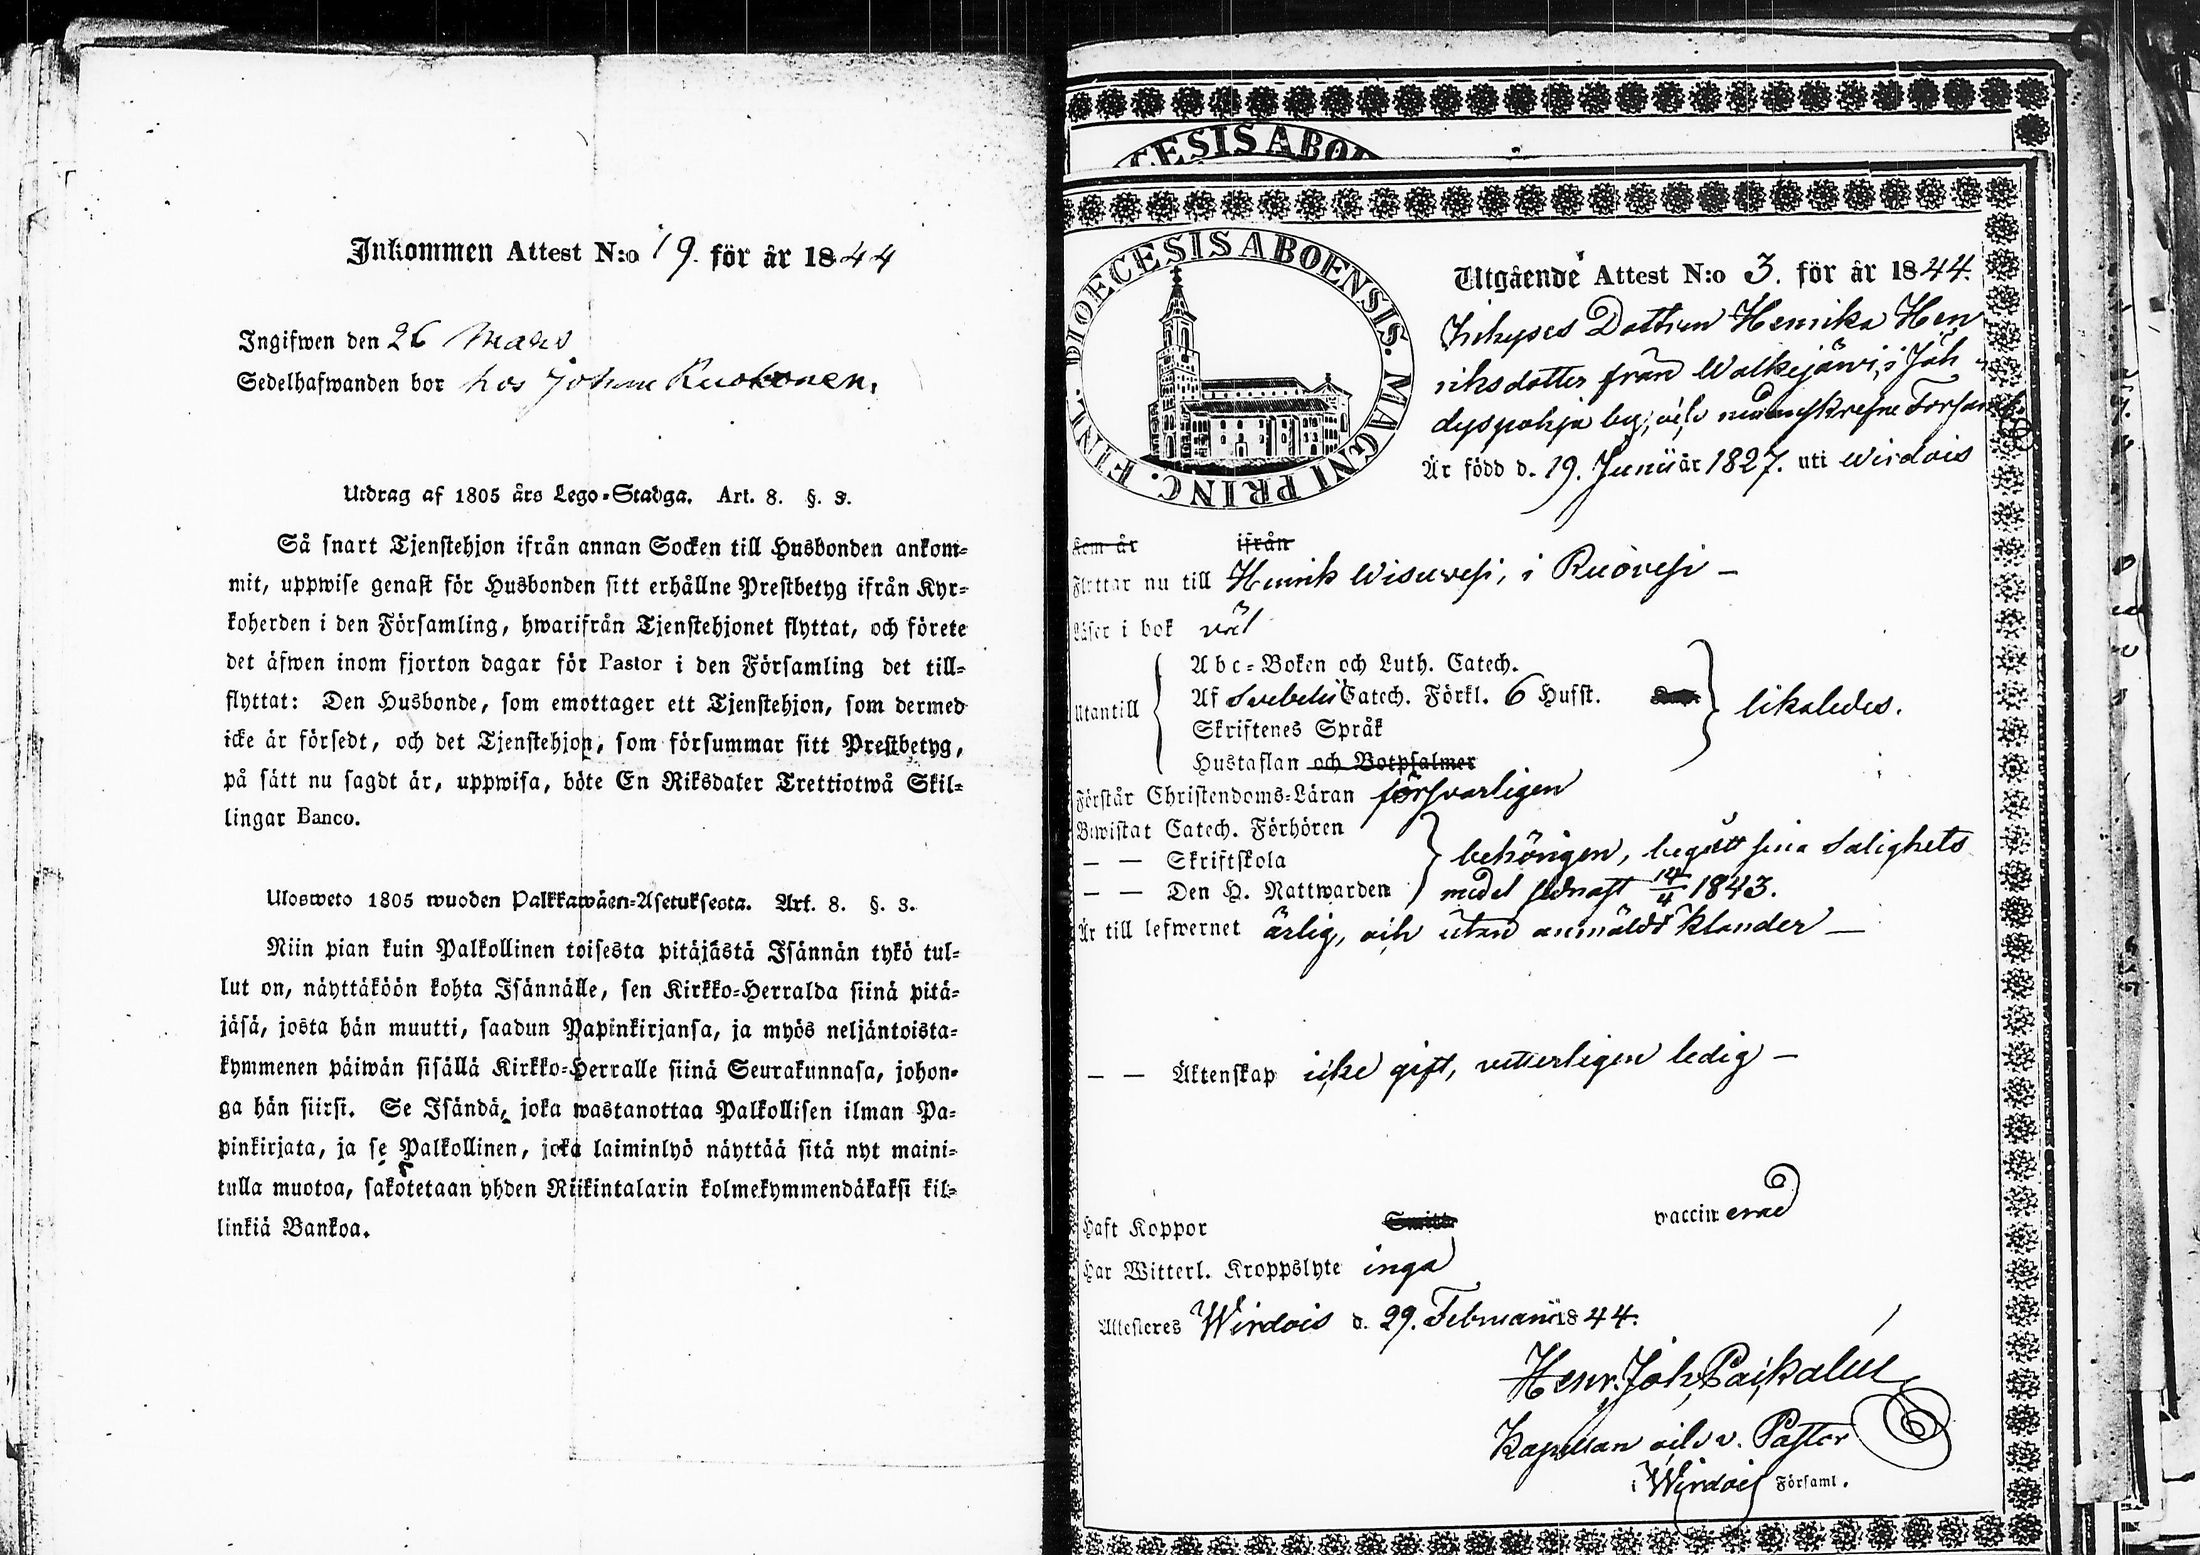 Inkommen Attest N:o 19. för år 1844
Ingifwen den 26 Mars
Sedelhafwanden bor hos Johan Ruokonen.
Utdrag af 1805 års Lego-Stadga. Art. 8. §. 3.
Så snart Tjenstehjon ifrån annan Socken till Husbonden ankom-
mit, uppwise genast för Husbonden sitt erhållne Prestbetyg ifrån Kyr-
koherden i den Församling, hwarifrån Tjenstehjonet flyttat, och förete
det äfwen inom fjorton dagar för Pastor i den Församling det till-
flyttat: Den Husbonde, som emottager ett Tjenstehjon, som dermed
icke är försedt, och det Tjenstehjon, som försummar sitt Prestbetyg,
på sätt nu sagdt är, uppwisa, böte En Riksdaler Trettiotwå Skil-
lingar Banco.
Ulosweto 1805 wuoden Palkkawäen-Asetuksesta. Art. 8. §. 3.
Niin pian kuin Palkollinen toisesta pitäjästä Isännän tykö tul-
lut on, näyttäköön kohta Isännälle, sen Kirkko-Herralda siinä pitä-
jäsä, josta hän muutti, saadun Papinkirjansa, ja myös neljäntoista-
kymmenen päiwän sisällä Kirkko-Herralle siinä Seurakunnasa, johon-
ga hän siirsi. Se Isändä, joka wastanottaa Palkollisen ilman Pa-
pinkirjata, ja se Palkollinen, joka laiminlyö näyttää sitä nyt maini-
tulla muotoa, sakotetaan yhden Riikintalarin kolmekymmendäkaksi kil-
linkiä Bankoa.
CESIS ABOE
DIOECESIS ABOENSIS. MAGNI PRINC. FINL.
Utgående Attest N:o 3. för år 1844.
Dottren Henrika Hen
riksdotter från Walkejärwi, i Jäh
dyspohja by, och Församl.
Är född d. 19. Junii år 1827. uti Wirdois
Kom år ifrån
Flyttar nu till Henrik Wisuvesi, i Ruovesi –
Läser i bok väl
Utantill
Abc-Boken och Luth. Catech.
Af Svebelii Catech. Förkl. 6 Husst.
Skriftenes Språk
Hustaflan och Botpsalmer
likaledes.
Förstår Christendoms-Läran försvarligen
Bewistat Catech. Förhören
– – Skriftskola
behörigen, begått sina Salighets
– – Den H. Nattwarden medel sednast 14/4 1843.
Är till lefwernet ärlig, och utan anmäldt klander –
– – Äktenskap icke gift, vetterligen ledig –
Haft Koppor vaccinerad
Har Witterl. Kroppslyte inga
Attesteres Wirdois d. 29. Februarii 1844.
Henr. Joh. Paçkalin
Kapellan och v. Pastor
i Wirdois Församl.